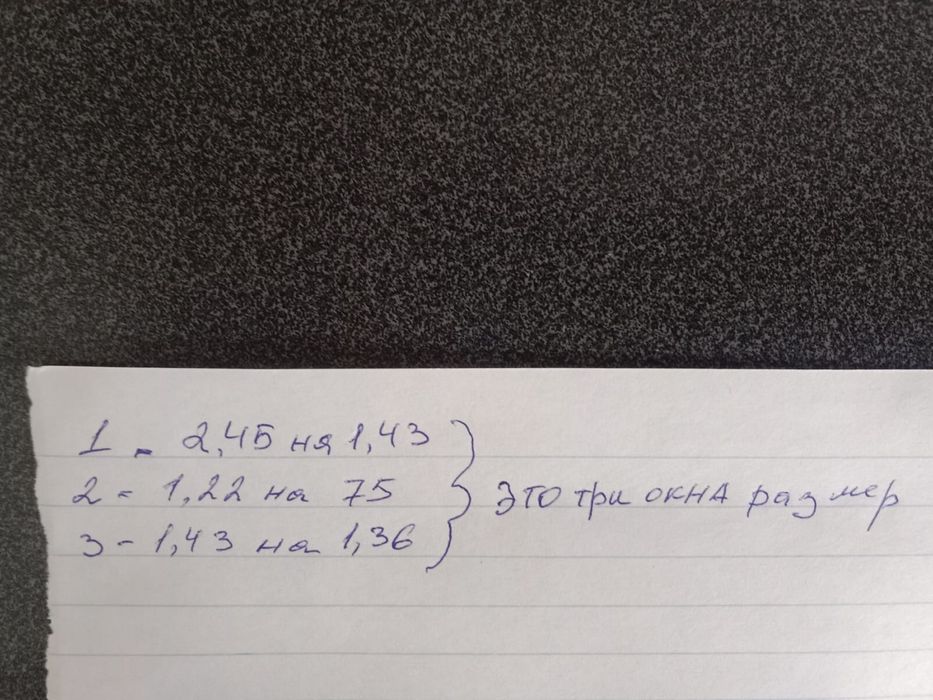 1 - 2,45 на 1,43
2 - 1,22 на 75
3 - 1,43 на 1,36
это три окна размер